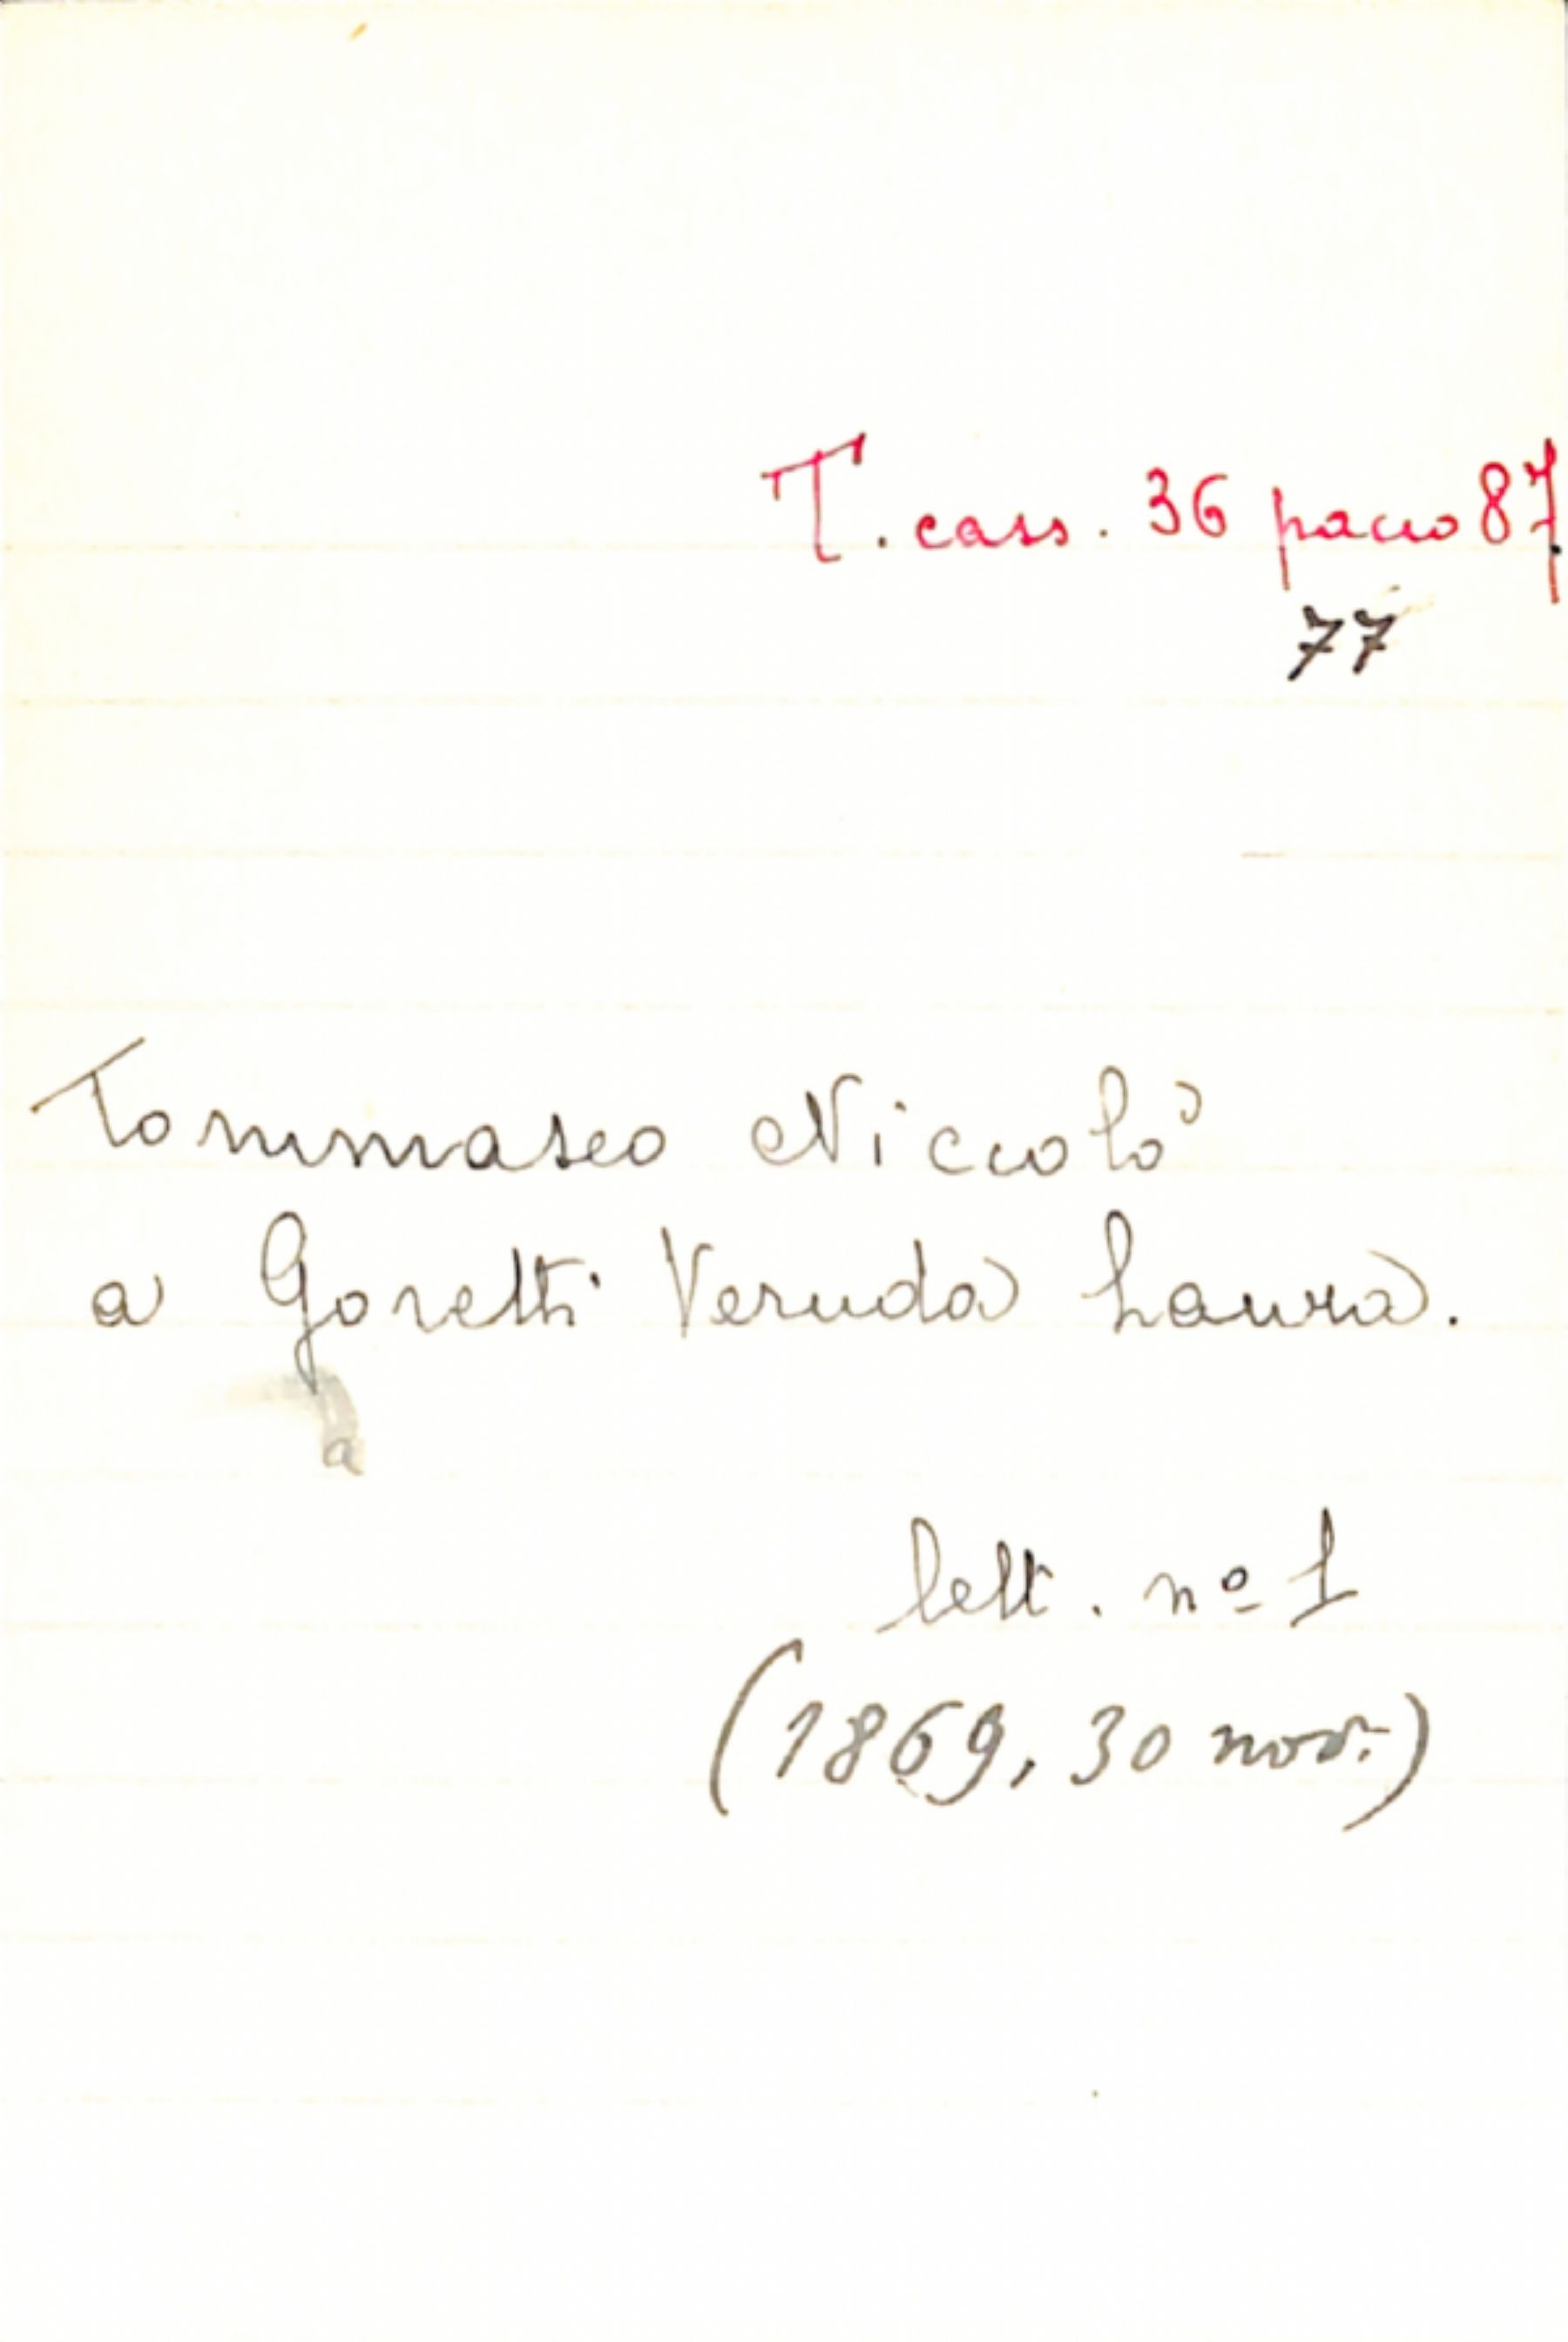 T. cass. 36 pacco 87
77
Tommaseo Niccolò
a Goretti Veruda Laura.
a
lett. nº 1
(1869, 30 nov.)